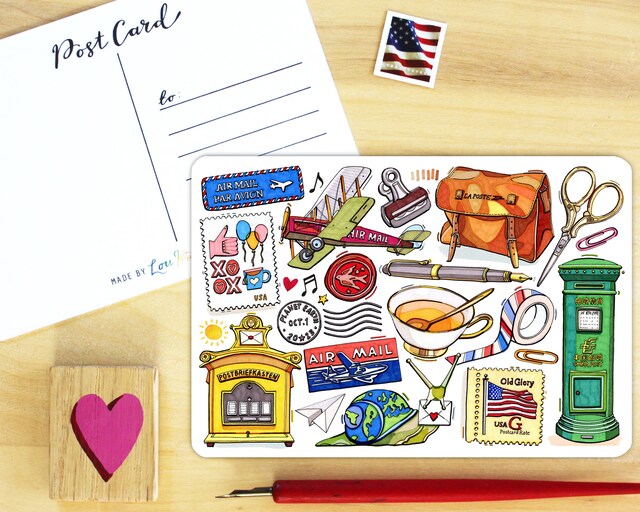 Post Card
to:
MADE BY Lou
AIR MAIL
PAR AVION
AIR MAIL
LA POSTE
XO
OX
USA
PLANET EARTH
OCT. 1
AIR MAIL
POSTBRIEFKASTEN
Old Glory
USA G
Postcard Rate